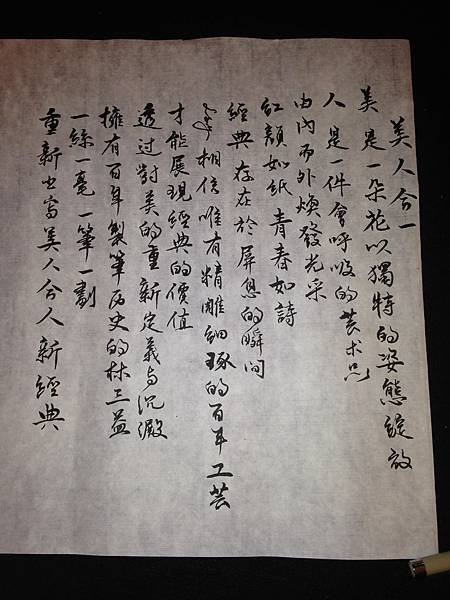 美人合一
美 是一朵花以獨特的姿態綻放
人 是一件會呼吸的芸术品
由內而外煥發光采
紅顏如紙 青春如詩
經典 存在於屏息的瞬间
相信唯有精雕細琢的百年工芸
才能展現經典的價值
透过對美的重新定義与沉澱
擁有百年製筆历史的林三益
一絲一毫一筆一劃
重新书寫美人合人新經典